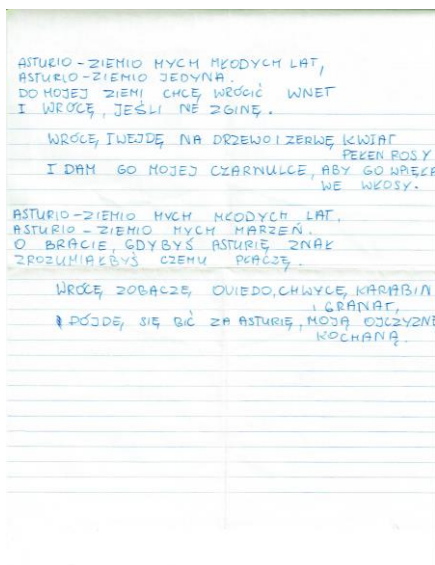 ASTURIO-ZIEMIO MYCH MŁODYCH LAT,
ASTURIO-ZIEMIO JEDYNA.
DO MOJEJ ZIEMI CHCĘ WRÓCIĆ WNET
I WRÓCĘ, JEŚLI NE ZGINĘ.
WRÓCĘ, I WEJDĘ NA DRZEWO I ZERWĘ KWIAT
PEŁEN ROSY
I DAM GO MOJEJ CZARNULCE, ABY GO WPIĘŁA
WE WŁOSY.
ASTURIO-ZIEMIO MYCH MŁODYCH LAT.
ASTURIO - ZIEMIO MYCH MARZEŃ.
O BRACIE, GDYBYŚ ASTURIĘ ZNAŁ
ZROZUMIAŁBYŚ CZEMU PŁACZĘ.
WRÓCĘ ZOBACZĘ, OVIEDO, CHWYCĘ, KARABIN
I GRANAT,
PÓJDĘ, SIĘ BIĆ ZA ASTURIĘ, MOJĄ OJCZYZNĘ
KOCHANĄ.